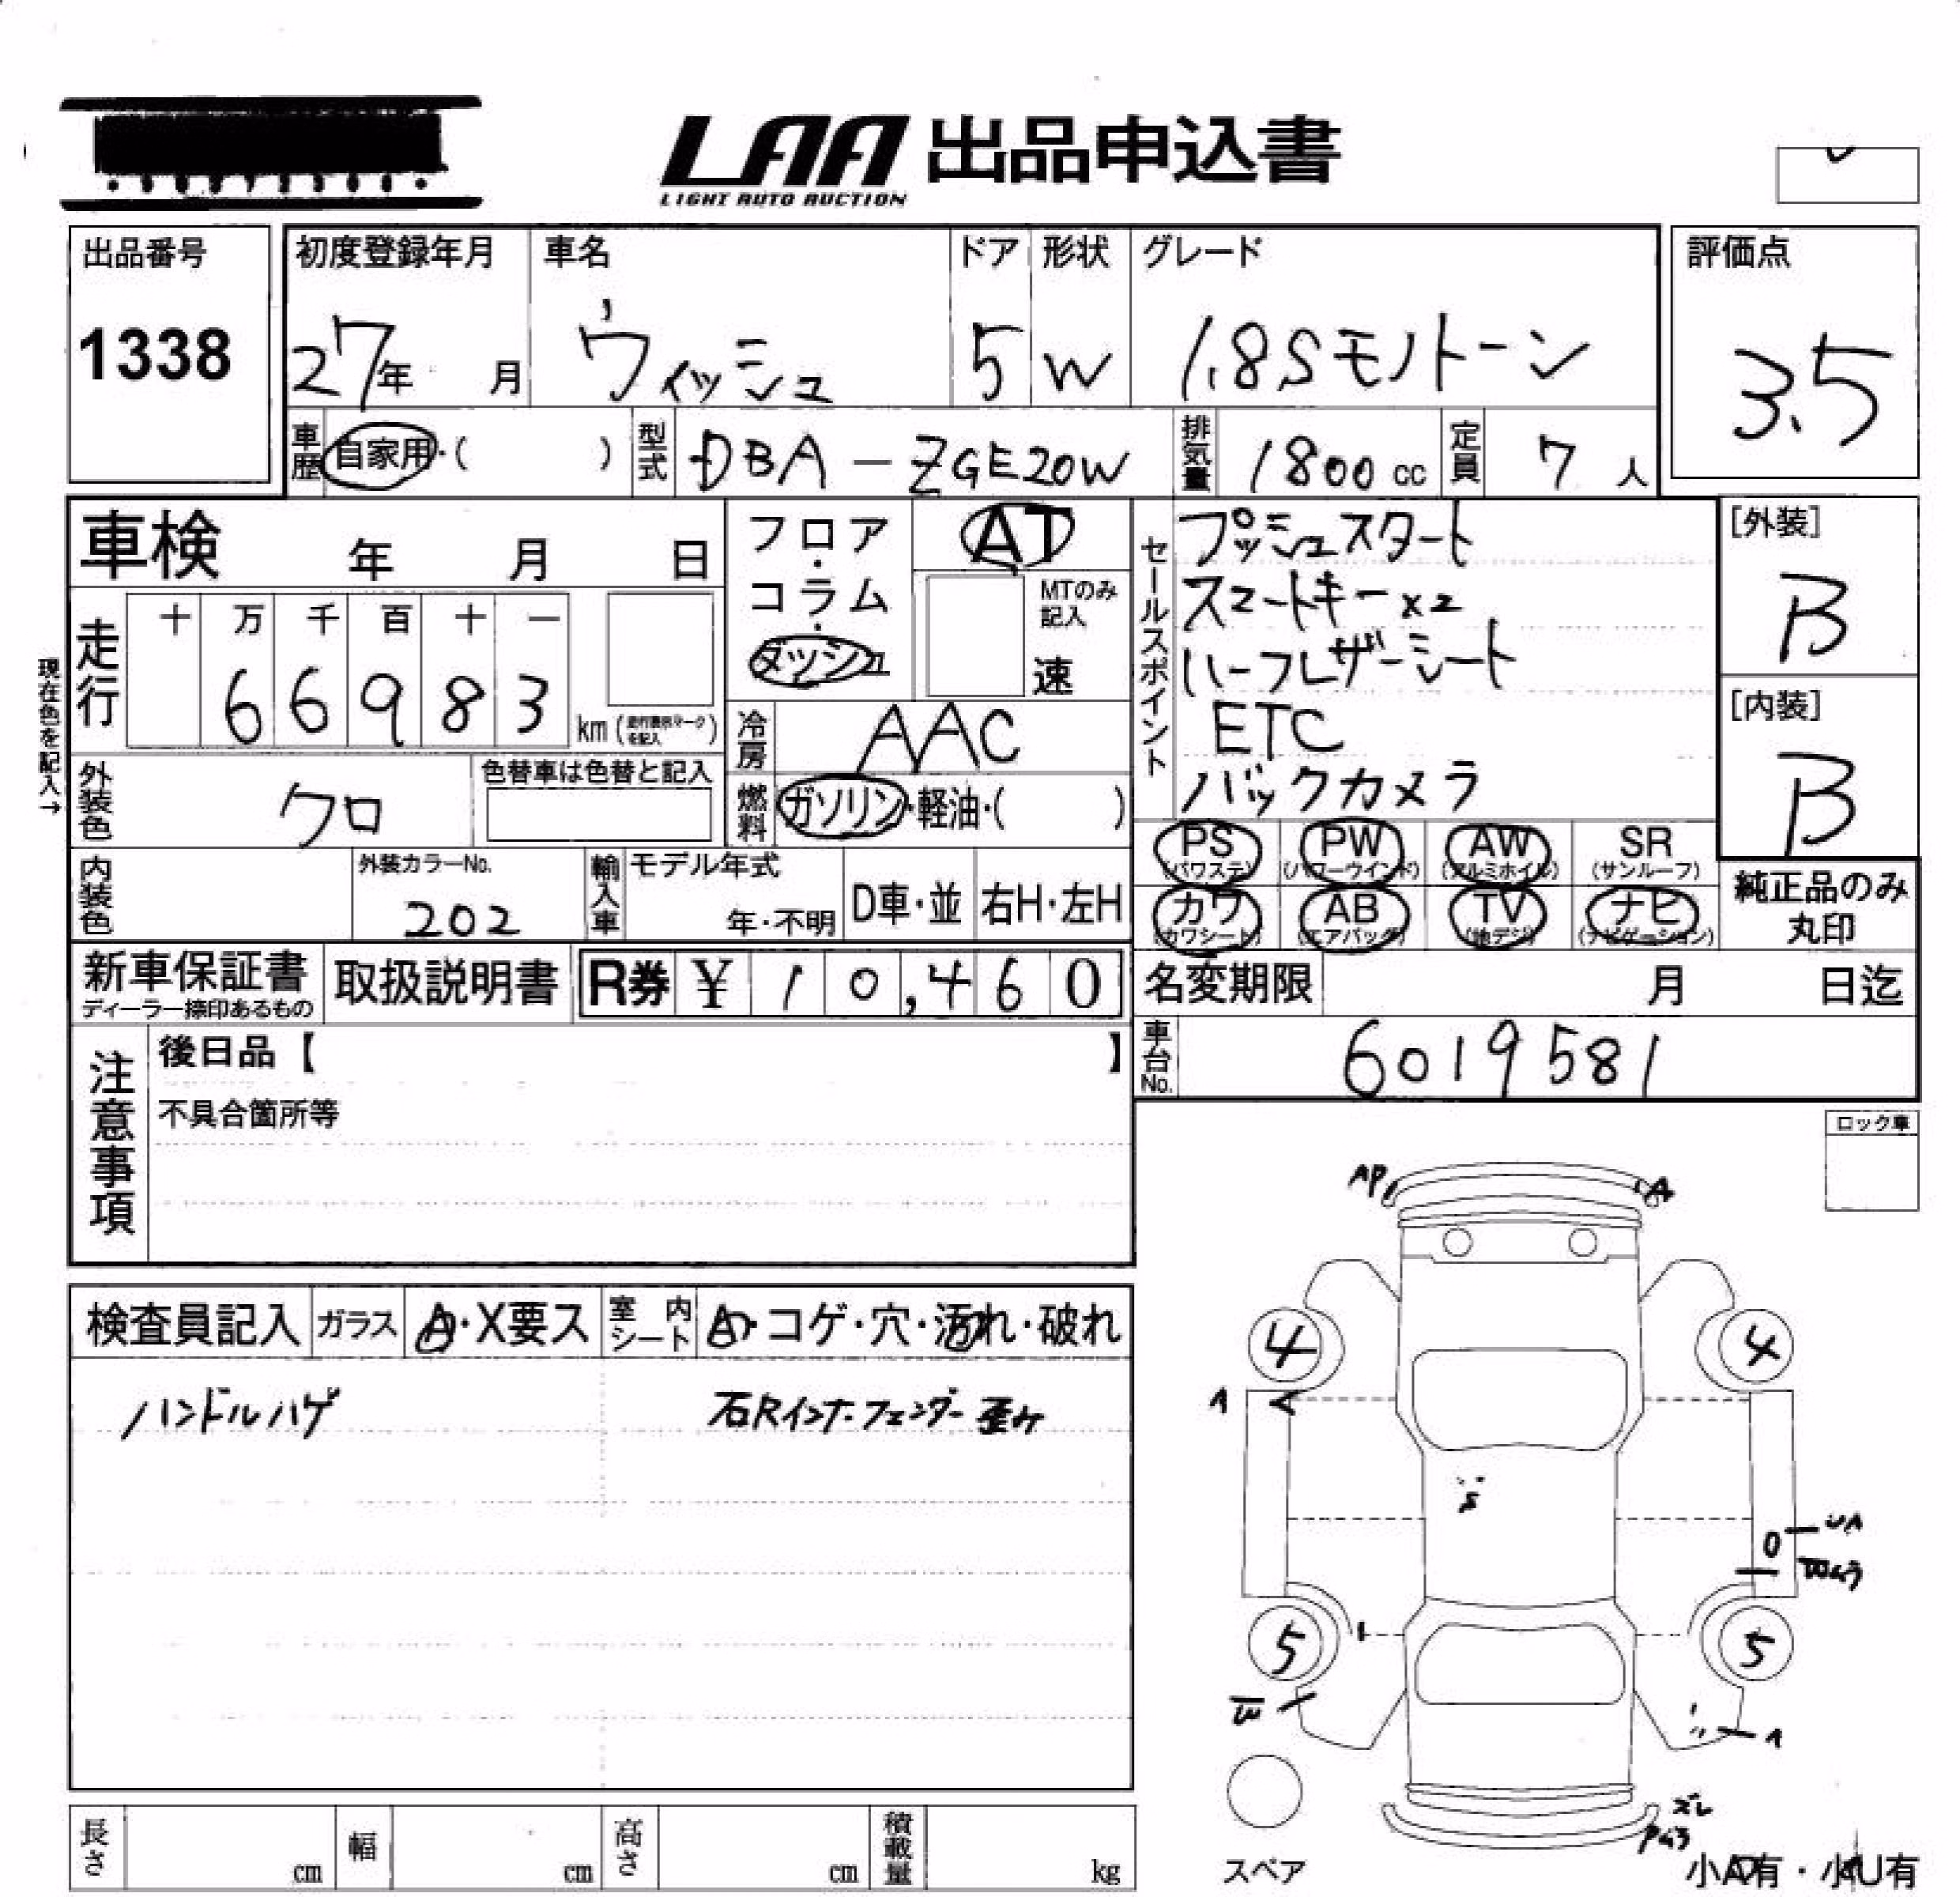 LAA 出品申込書
LIGHT AUTO AUCTION
出品番号
1338
初度登録年月
27年 月
車名
ウィッシュ
ドア
5
形状
W
グレード
1.8Sモノトーン
評価点
3.5
車歴
自家用・( )
型式
DBA-ZGE20W
排気量
1800 cc
定員
7 人
車検 年 月 日
フロア・コラム・ダッシュ
AT
MTのみ記入
速
セールスポイント
プッシュスタート
スマートキー×2
ハーフレザーシート
ETC
バックカメラ
[外装]
B
[内装]
B
現在色を記入→
走行
十 万 千 百 十 一
6 6 9 8 3
km (走行表示マークを記入)
冷房
AAC
外装色
クロ
色替車は色替と記入
燃料
ガソリン・軽油・( )
PS (パワステ)
PW (パワーウインド)
AW (アルミホイル)
SR (サンルーフ)
カワ (カワシート)
AB (エアバッグ)
TV (地デジ)
ナビ (ナビゲーション)
純正品のみ丸印
内装色
外装カラーNo.
202
輸入車
モデル年式
年・不明
D車・並
右H・左H
新車保証書
ディーラー捺印あるもの
取扱説明書
R券 ¥ 10,460
名変期限 月 日迄
車台No.
6019581
注意事項
後日品【 】
不具合箇所等
ロック車
AP
A
検査員記入
ガラス
A・X要ス
室内シート
A・コゲ・穴・汚れ・破れ
ハンドルハゲ
右Rインナーフェンダー歪み
4
4
5
5
スペア
ズレ
小A有・小U有
長さ cm
幅 cm
高さ cm
積載量 kg